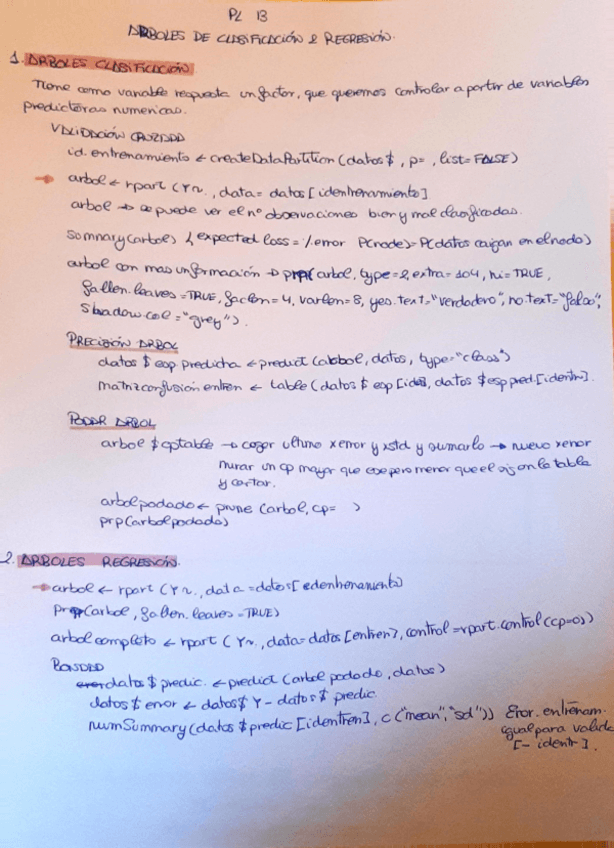 PL 13
ARBOLES DE CLASIFICACIÓN & REGRESIÓN.
1. ARBOLES CLASIFICACIÓN
Tiene como variable respuesta un factor, que queremos controlar a partir de variables
predictoras numericas.
VALIDACIÓN CRUZADA
id.entrenamiento ← createDataPartition (datos$ , p= , list=FALSE)
→ arbol ← rpart (Y~., data= datos [identrenamiento]
arbol → se puede ver el nº observaciones bien y mal clasificadas.
Sommary(arbol) expected loss = % error P(node)= P(datos caigan en el nodo)
arbol con mas información → prp( arbol, type=2, extra=104, ni=TRUE,
fallen.leaves=TRUE, faclen=4, varlen=8, yes.text="verdadero", no.text="falso",
Shadow.col="grey").
PRECISIÓN ARBOL
datos $ esp.predicha ← predict (arbol, datos, type="class")
matrizconfusión entren ← table (datos $ esp [iden], datos $esp pred.[identr].
PODAR ARBOL
arbol $cptable → coger ultimo xerror y xstd y sumarlo → nuevo xerror
mirar un cp mayor que ese pero menor que el sig en la tabla
y cortar.
arbolpodado ← prune (arbol, cp= )
prp(arbolpodado)
2. ARBOLES REGRESIÓN.
→ arbol ← rpart (Y~., data =datos[edentrenamiento)
prp(arbol, fallen.leaves=TRUE)
arbol completo ← rpart (Y~., data=datos [entren], control=rpart.control(cp=0))
BONDAD
datos $ predic. ← predict (arbol podado, datos)
datos $ error ← datos$ Y - datos $ predic
numSummary (datos $ predic [identren], c("mean","sd")) Error. entrenam.
igual para valida
[- identr].